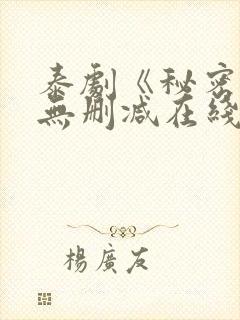 泰劇《秘密
無刪减在綫
楊廣友